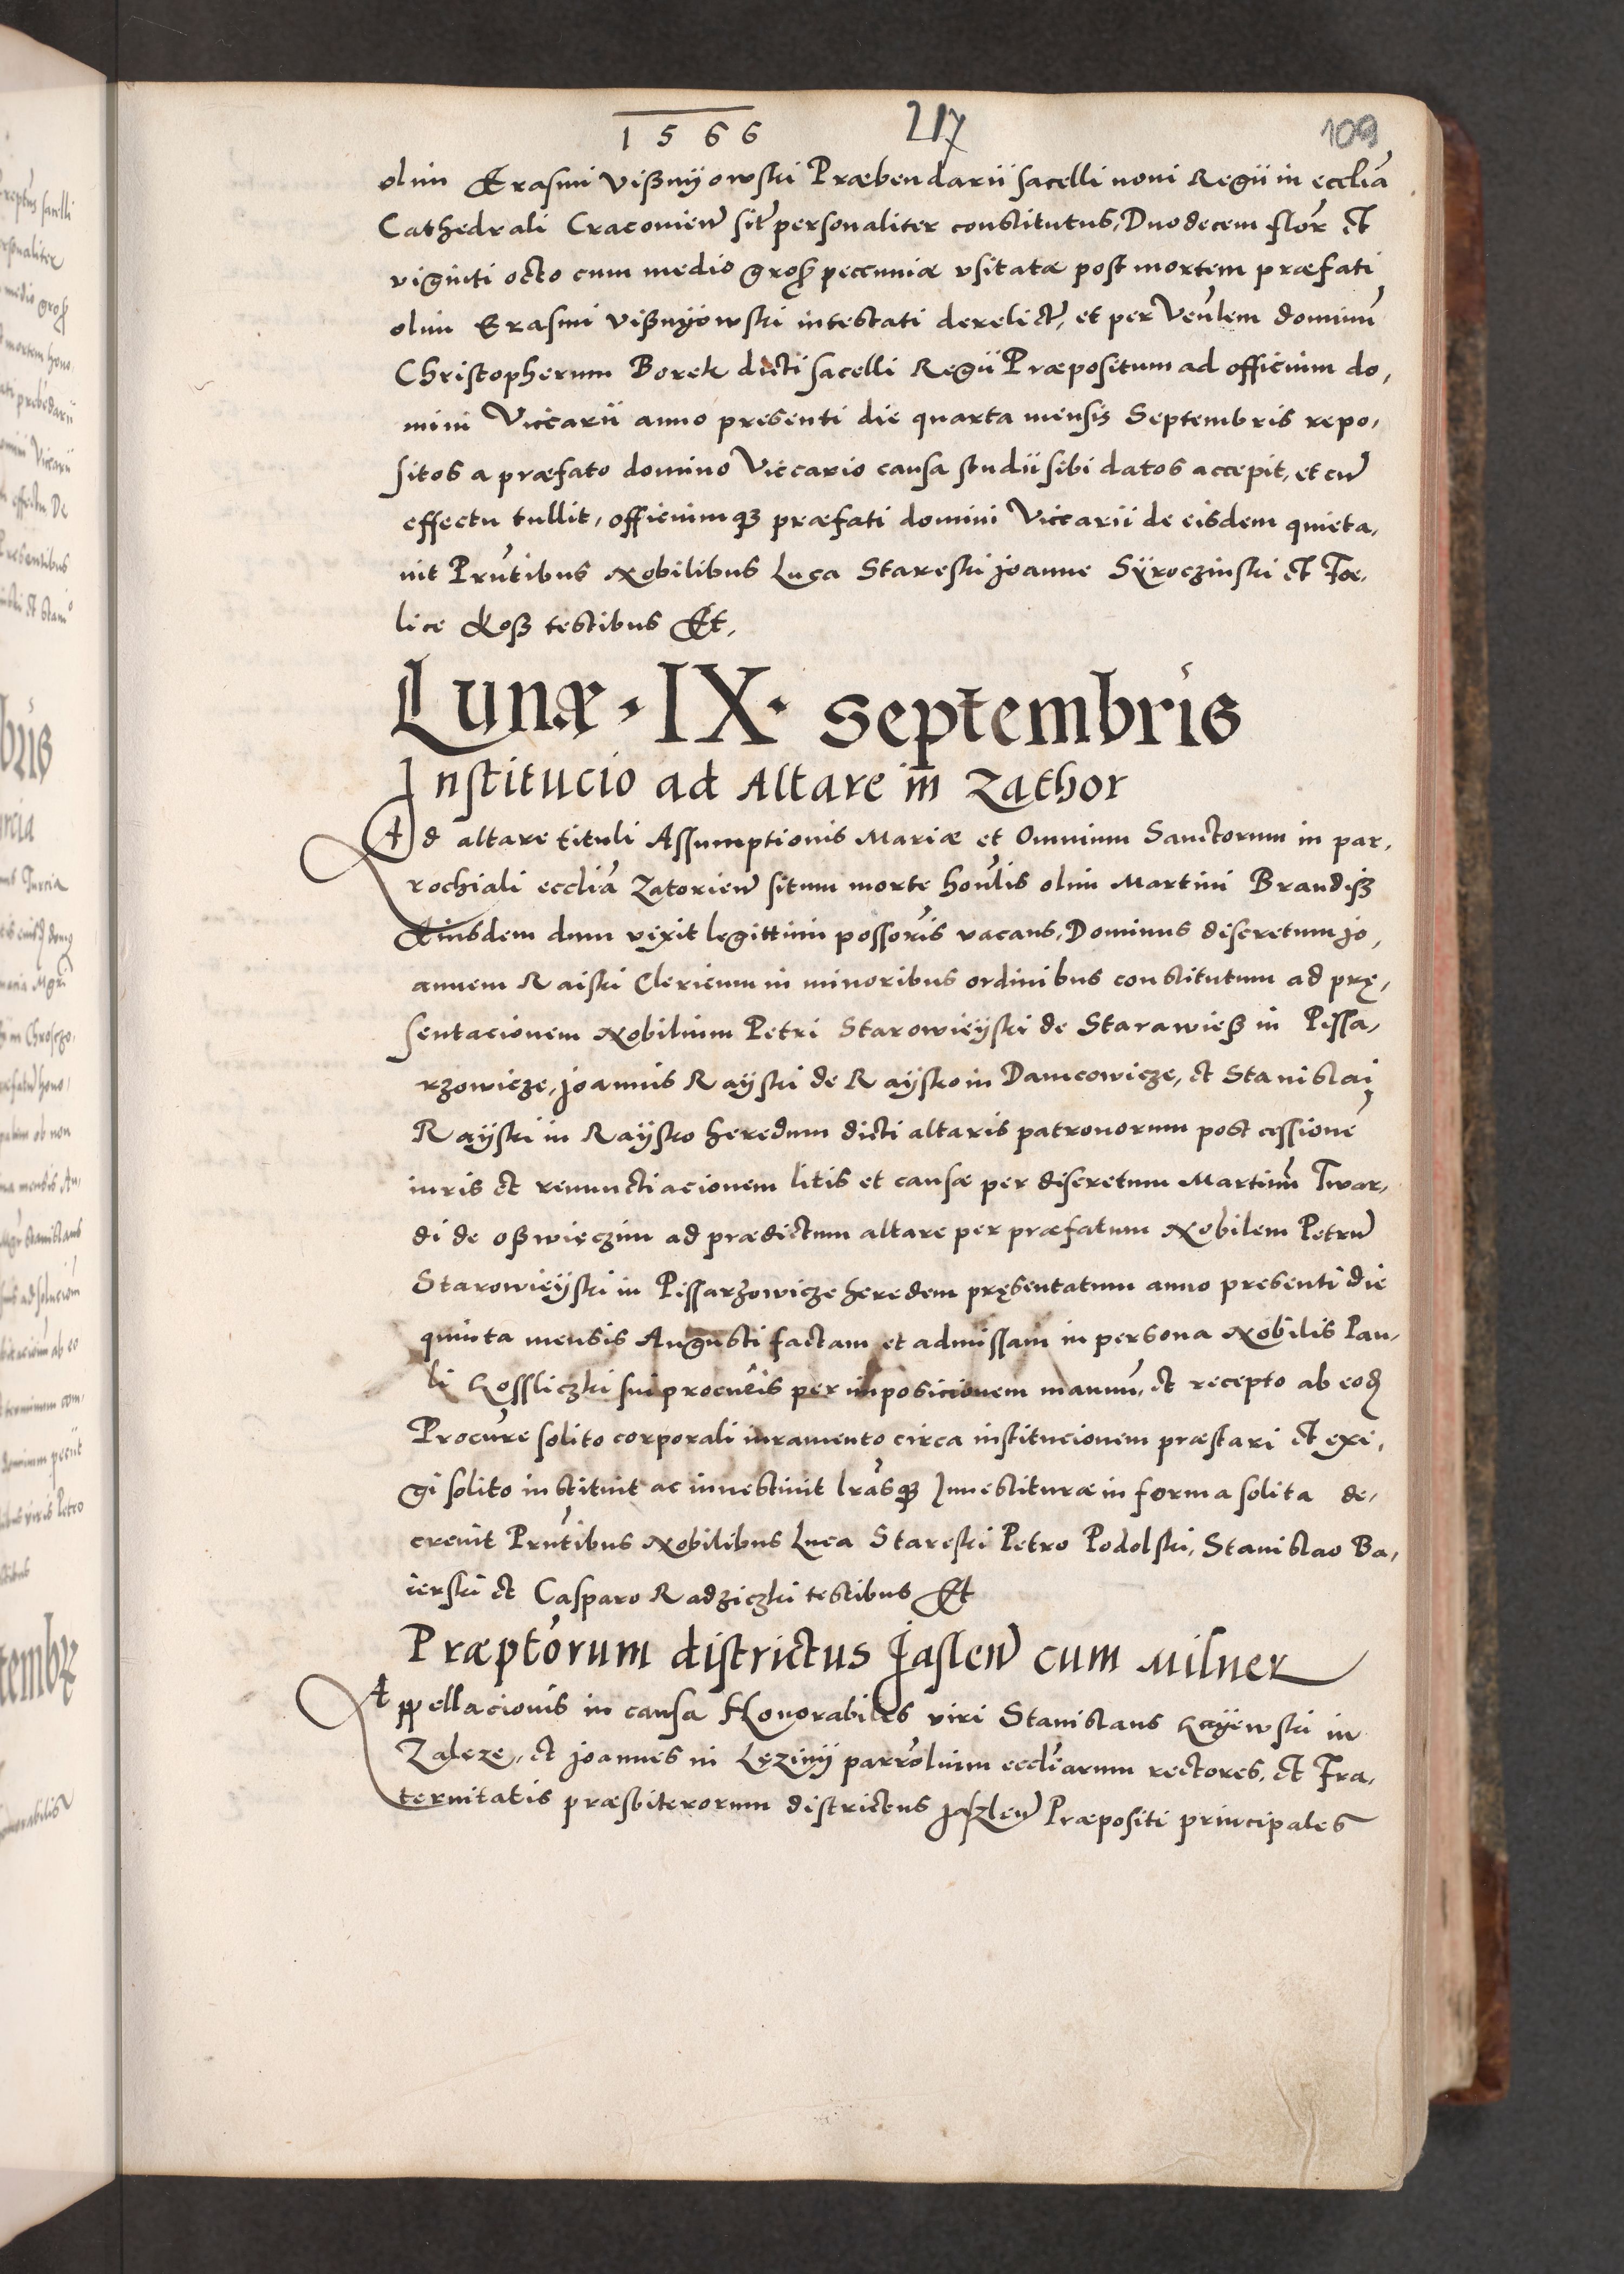 1566 217 109
olim Erasmi Vißnÿowski Præbendarii sacelli noni Regii in ecclia
Cathedrali Cracovien sit personaliter constitutus, Duodecem flor et
viginti octo cum medio gros peccuniæ vsitatæ post mortem præfati
olim Erasmi Vißnÿowski intestati derelict, et per Venlem dominu
Christopherum Borek dicti sacelli Regii Præpositum ad officium do,
mini Viccarii anno presenti die quarta mensis Septembris repo,
sitos a præfato domino Viccario causa studii sibi datos accepit, et cu
effectu tullit, officiumq præfati domini Viccarii de eisdem quieta,
uit Prntibus Nobilibus Luca Stareski Joanne Sÿroczinski et Foe,
lice Koß testibus Et,
Lunæ · IX · Septembris
Institucio ad Altare in Zathor
Ad altare tituli Assumptionis Mariæ et Omnium Sanctorum in par,
rochiali ecclia Zatorien situm morte honlis olim Martini Brandiß
Eiusdem dum vixit legittimi possoris vacans, Dominus discretum Jo,
annem Raiski Clericum in minoribus ordinibus constitutum ad prę,
sentacionem Nobilium Petri Starowieÿski de Starawieß in Pissa,
rzowicze, Joannis Raÿski de Raÿsko in Dancowicze, et Stanislai
Raÿski in Raÿsko heredum dicti altaris patronorum post cessione
iuris et renunctiacionem litis et causæ per discretum Martinu Twar,
di de Oßwięczim ad prædictum altare per præfatum Nobilem Petru
Starowieÿski in Pissarzowicze heredem pręsentatum anno presenti die
quinta mensis Augusti factam et admissam in persona Nobilis Pau,
li Kossliczki sui procuris per imposicionem manuu, et recepto ab eod
Procure solito corporali iuramento circa institucionem præstari et exi,
gi solito instituit ac inuestiuit lrasq Inuestituræ in forma solita de,
creuit Prntibus Nobilibus Luca Stareski Petro Podolski, Stanislao Ba,
ierski et Casparo Radziczki testibus Et
Præptorum districtus Jaslen cum Milner
Appellacionis in causa Honorabiles viri Stanislaus Kaÿewski in
Zaleze, et Joannes in Lęzinÿ parrolium eccliarum rectores, et Fra,
ternitatis præsbiterorum districtus Jaszlen Præpositi principales